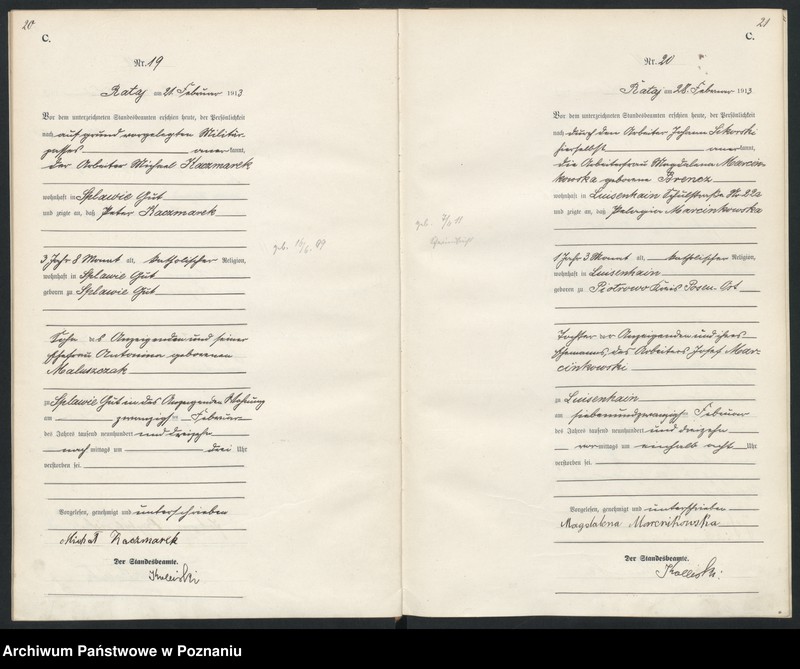 20
C.
Nr. 19
Rataj am 21. Februar 1913
Vor dem unterzeichneten Standesbeamten erschien heute, der Persönlichkeit
nach auf grund vorgelegten Militär-
passes anerkannt,
der Arbeiter Michael Kaczmarek
wohnhaft in Splawie Gut
und zeigte an, daß Peter Kaczmarek
3 Jahr 8 Monat alt, katholischer Religion,
wohnhaft in Splawie Gut
geboren zu Splawie Gut
Sohn des Anzeigenden und seiner
Ehefrau Antonina geborenen
Maluszczak
zu Splawie Gut in des Anzeigenden Wohnung
am zwanzigsten Februar
des Jahres tausend neunhundert und dreizehn
nach mittags um drei Uhr
verstorben sei.
Vorgelesen, genehmigt und unterschrieben
Kaczmarek
Der Standesbeamte.
geb.
21
C.
Nr. 20
Rataj am 28. Februar 1913
Vor dem unterzeichneten Standesbeamten erschien heute, der Persönlichkeit
nach durch den Arbeiter Johann Sikorski
hierselbst anerkannt,
die Arbeiterfrau Magdalena Marcin-
kowska geborene Brencz
wohnhaft in Luisenhain Schulstraße Nr. 22a
und zeigte an, daß Pelagia Marcinkowska
1 Jahr 3 Monat alt, katholischer Religion,
wohnhaft in Luisenhain
geboren zu Piotrowo Kreis Posen-Ost
Tochter der Anzeigenden und ihres
Ehemannes, des Arbeiters Josef Mar-
cinkowski
zu Luisenhain
am siebenundzwanzigsten Februar
des Jahres tausend neunhundert und dreizehn
vor mittags um einhalb acht Uhr
verstorben sei.
Vorgelesen, genehmigt und unterschrieben
Magdalena
Der Standesbeamte.
geb.
Archiwum Państwowe w Poznaniu